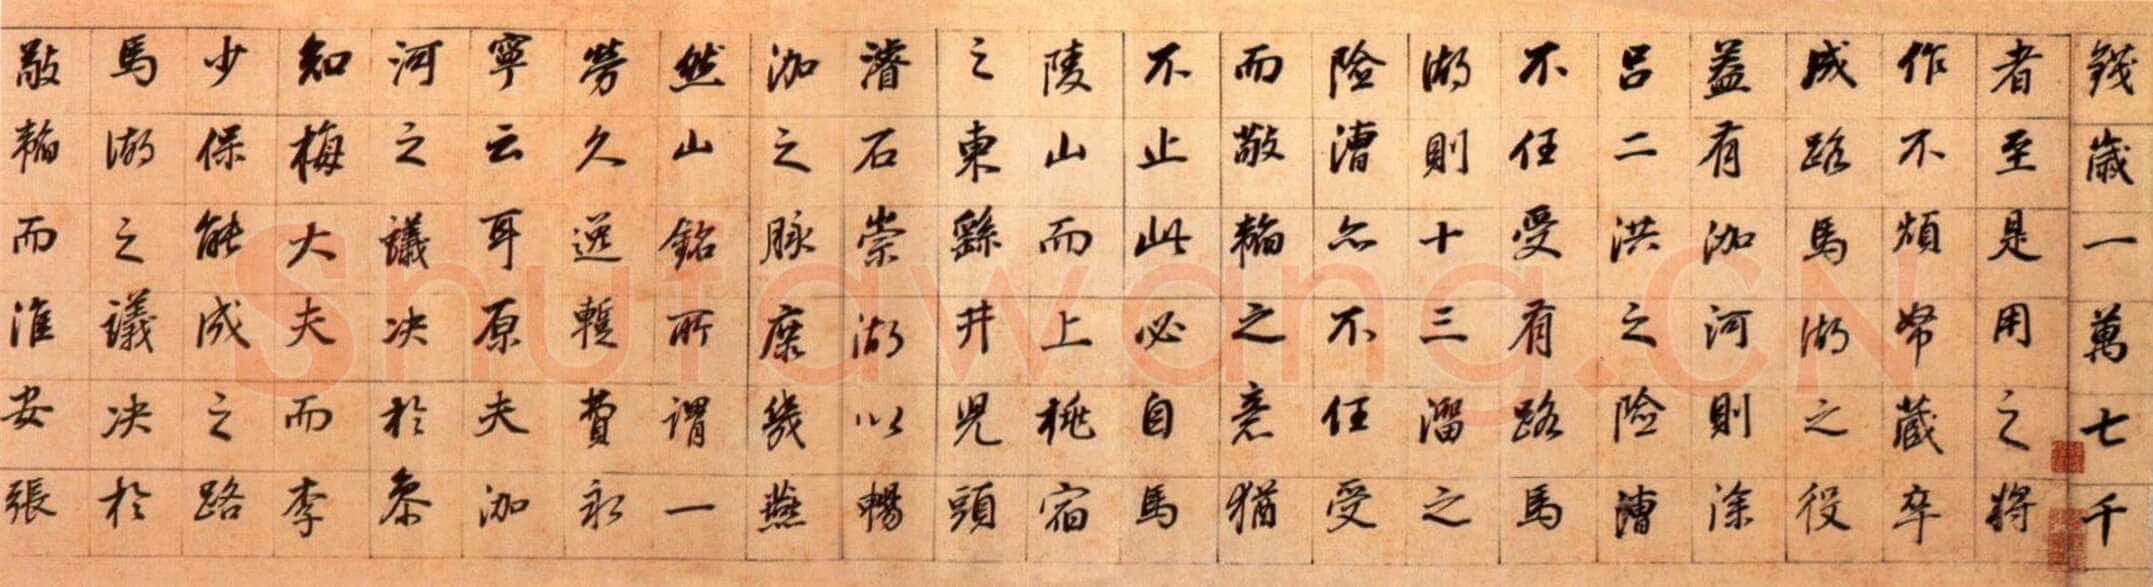 錢歲一萬七千
者至是用之將
作不煩帑藏卒
成路馬湖之役
蓋有泇河則涂
呂二洪之險漕
不任受有路馬
湖則十三溜之
險漕亦不任受
而敵輸之意猶
不止此必自馬
陵山而上桃宿
之東繇井兒頭
濬石崇湖以暢
泇之脉庶幾燕
然山銘所謂一
勞久逸暫費永
寧云耳原夫泇
河之議決於黎
知梅大夫而李
少保能成之路
馬湖之議決於
敵輸而淮安張
Shufawang.CN